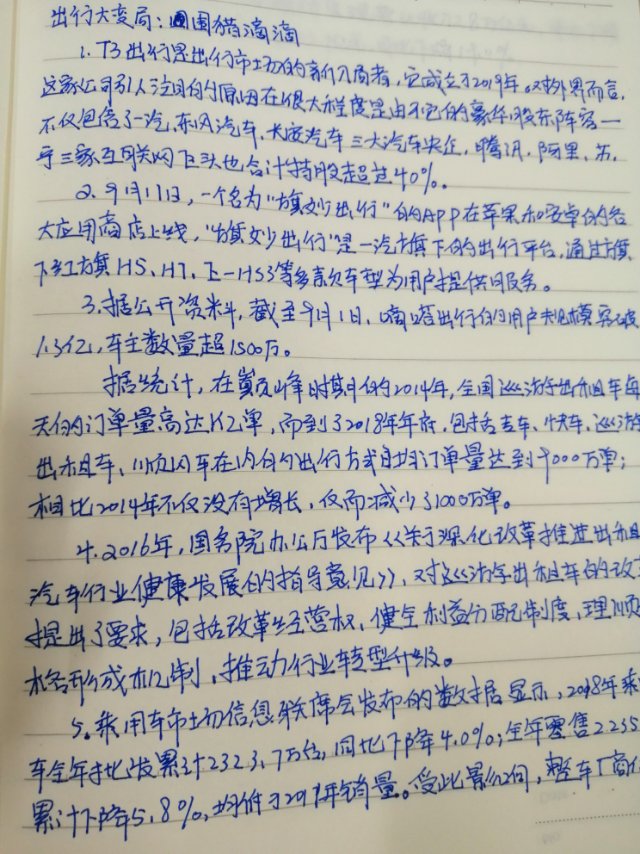 出行大变局：围猎滴滴
1. T3出行是出行市场的新入局者，它成立于2019年。对外界而言，
这家公司引人注目的原因在很大程度是由于它的豪华股东阵容一
不仅包含了一汽、东风汽车、长安汽车三大汽车央企，腾讯、阿里、苏
宁三家互联网巨头也合计持股超过40%。
2. 9月17日，一个名为"旗妙出行"的APP在苹果和安卓的各
大应用商店上线，"旗妙出行"是一汽旗下的出行平台，通过旗
下红旗H5、H7、E-HS3等多款车型为用户提供服务。
3. 据公开资料，截至9月1日，嘀嗒出行的用户规模突破
1.3亿，车主数量超1500万。
据统计，在巅峰时期的2014年，全国巡游出租车每
天的订单量高达1亿单，而到了2018年年底，包括专车、快车、巡游
出租车、顺风车在内的出行方式日均订单量达到9000万单；
相比2014年不仅没有增长，反而减少了1000万单。
4. 2016年，国务院办公厅发布《关于深化改革推进出租
汽车行业健康发展的指导意见》，对巡游出租车的改
提出了要求，包括改革经营权、健全利益分配制度、理顺
格形成机制，推动行业转型升级。
5. 乘用车市场信息联席会发布的数据显示，2018年乘
车全年批发累计2323.7万台，同比下降4.0%；全年零售2235
累计下降5.8%，均低于2017年销量。受此影响，整车厂商